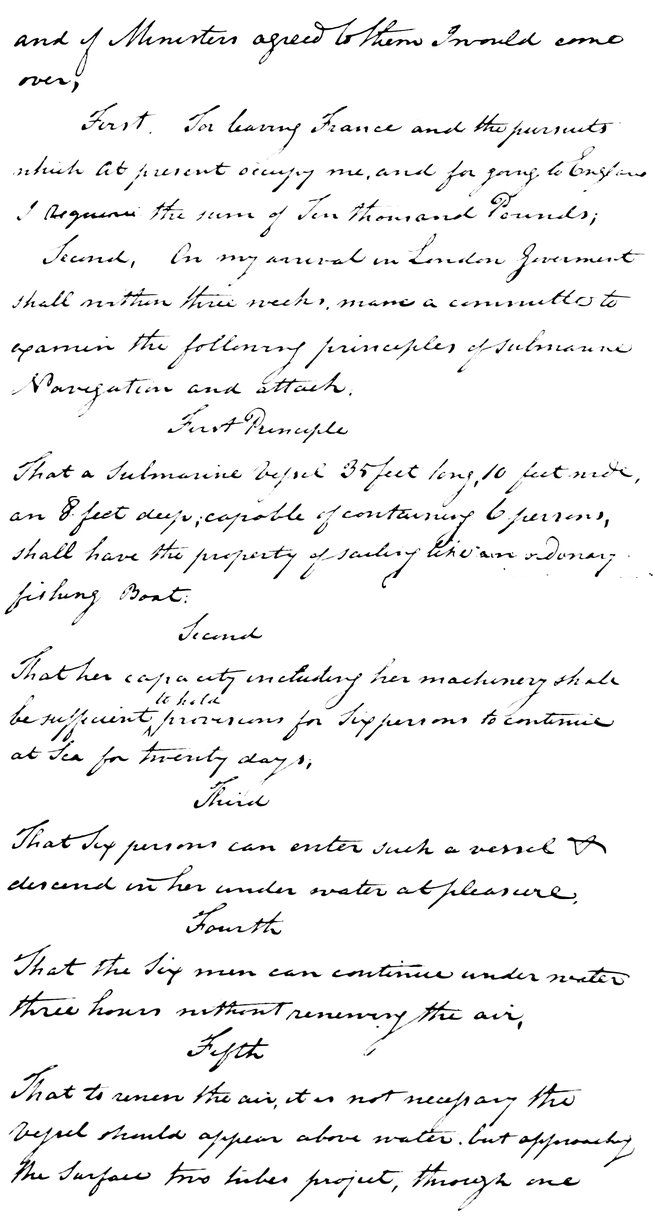 and if Ministers agreed to them I would come
over;
First. For leaving France and the pursuits
which at present occupy me, and for going to England
I requier the sum of Ten thousand Pounds;
Second, On my arrival in London Goverment
shall within three weeks, name a committe to
examin the following principles of submarine
Navigation and attack.
First Principle
That a Submarine Vessel 35 feet long, 10 feet wide,
an 8 feet deep; capable of containing 6 persons,
shall have the property of sailing like an ordonary
fishing Boat.
Second
That her capacity including her machinery shall
to hold
be sufficient ‸ provisions for Six persons to continue
at Sea for twenty days;
Third
That Six persons can enter such a vessel &
descend in her under water at pleasure.
Fourth
That the Six men can continue under water
three hours without renewing the air,
Fifth
That to renew the air, it is not necessary the
Vessel should appear above water. but approaching
the Surface two tubes project, through one